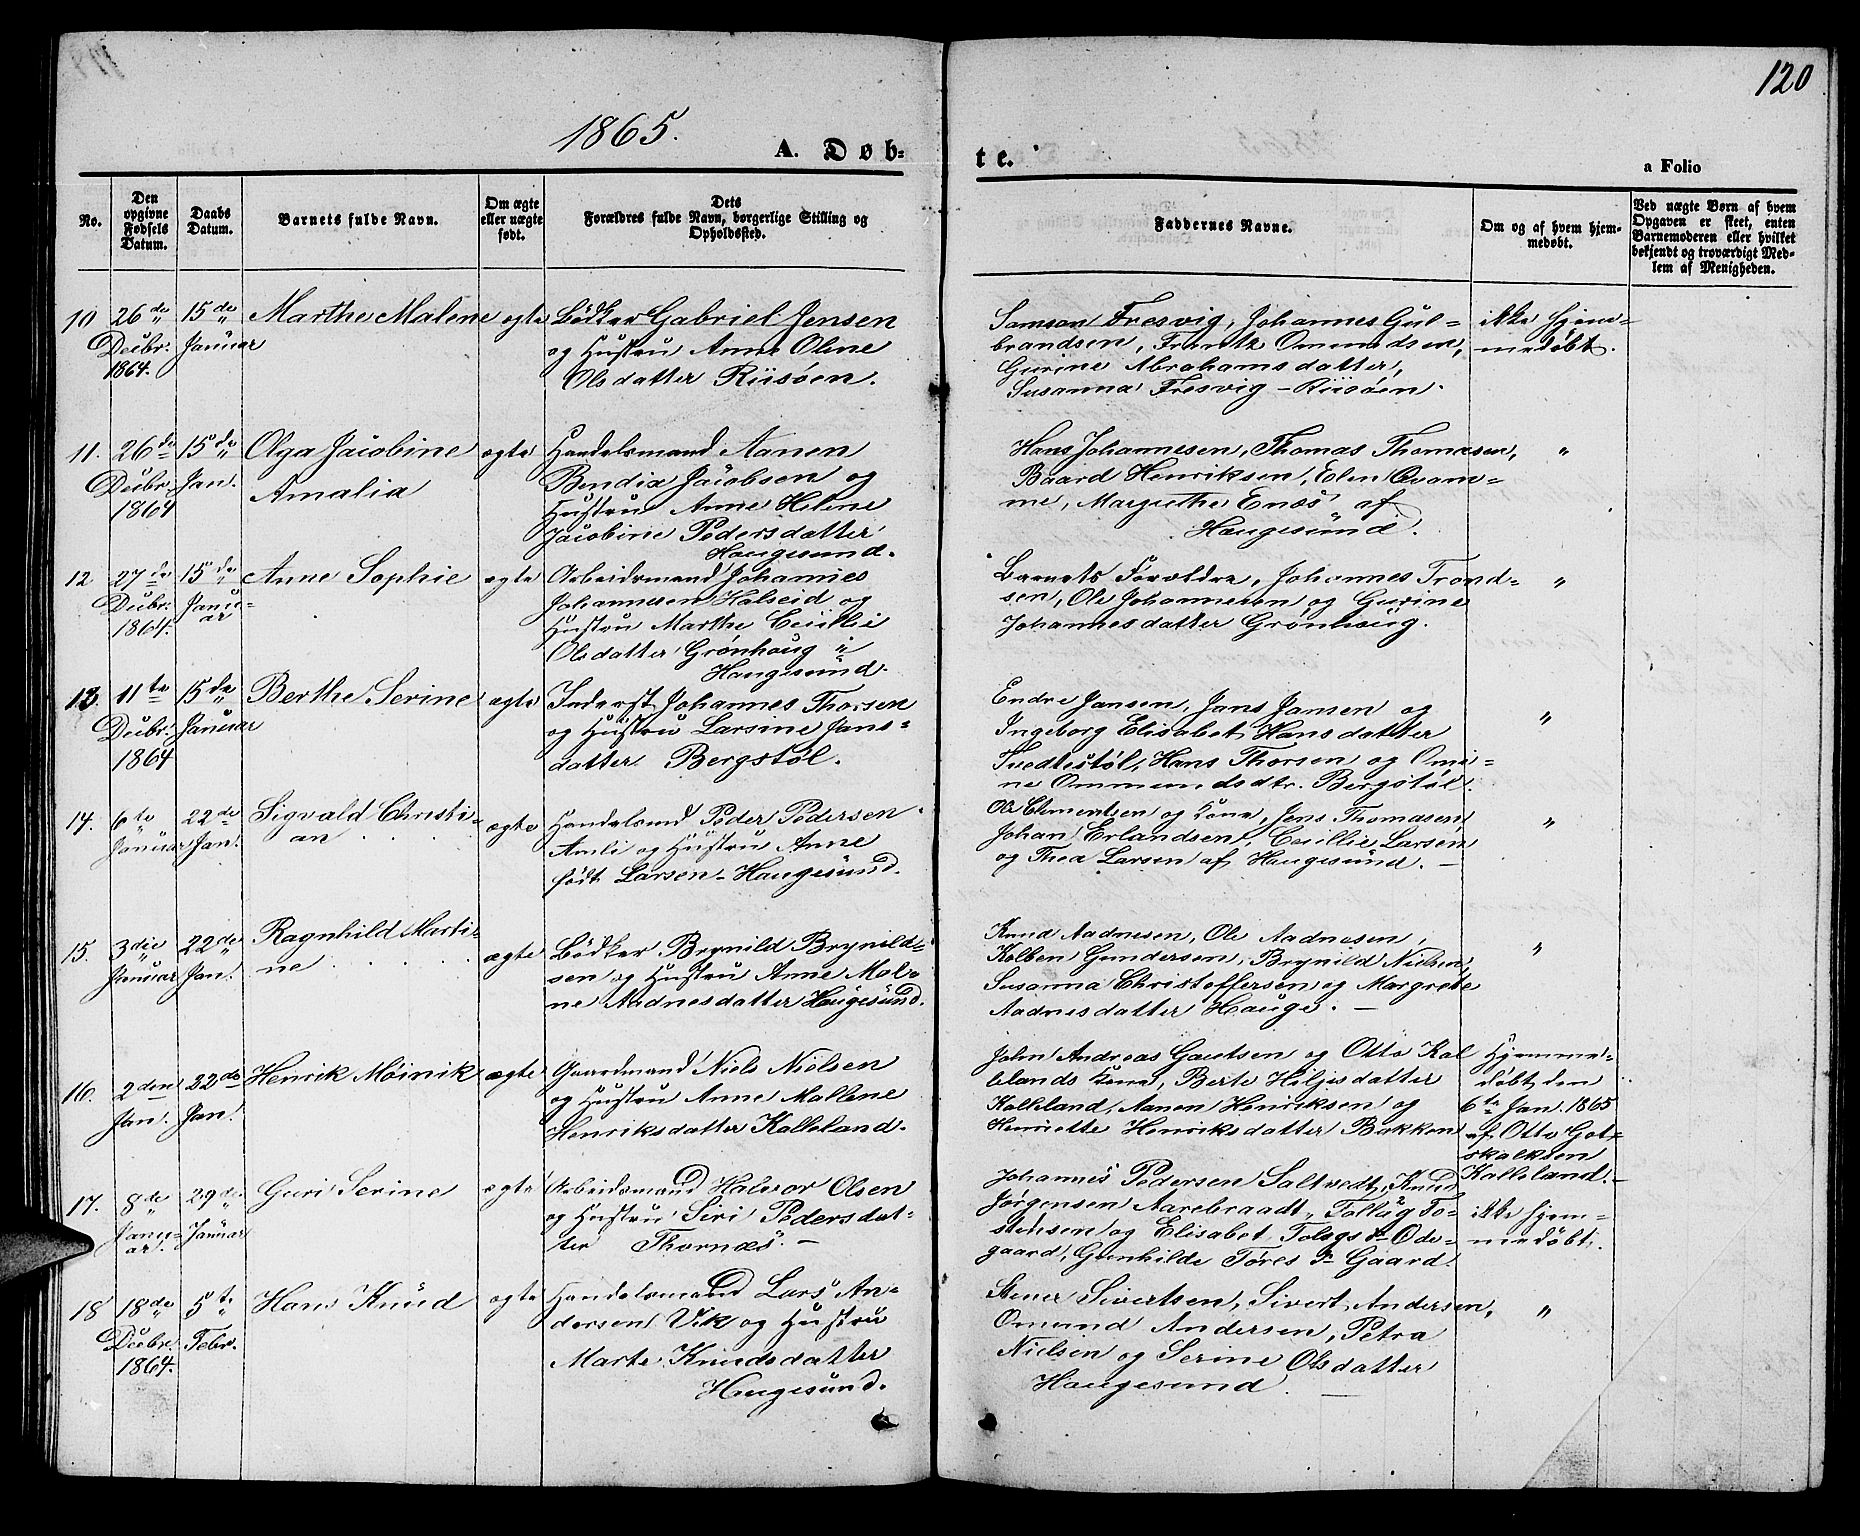 120
1865.
A. Døb-
te.
a Folio
No.
Den
opgivne
Fødsels
Datum.
Daabs
Datum.
Barnets fulde Navn.
Om ægte
eller uægte
født.
Dets
Forældres fulde Navn, borgerlige Stilling og
Opholdssted.
Faddernes Navne.
Om og af hvem hjem-
medøbt.
Ved uægte Børn af hvem
Opgaven er skeet, enten
Barnemoderen eller hvilket
bekjendt og troværdigt Med-
lem af Menigheden.
10
26de
Decbr.
1864.
15de
Januar
Marthe Malene
egte
Bødker Gabriel Jensen
og Hustru Anne Oline
Olsdatter Riisøen.
Samson Fresvig, Johannes Gul-
brandsen, Frantz Ommundsen,
Gurine Abrahamsdatter,
Susanna Fresvig - Riisøen.
ikke hjem-
medøbt.
11.
26de
Decbr.
1864
15de
Jan.
Olga Jacobine
Amalia
ægte
Handelsmand Aanen
Bendix Jacobsen og
Hustru Anne Helene
Jacobine Pedersdatter
Haugesund.
Hans Johannesen, Thomas Thomasen,
Baard Henriksen, Elen Qvam-
me, Margrethe Enæs af
Haugesund.
"
12
27de
Decbr.
1864.
15de
Janu-
ar
Anne Sophie
ægte
Arbeidsmand Johannes
Johannesen Halseid og
Hustru Marthe Cecilie
Olsdatter Grønhaug i
Haugesund.
Barnets Forældre, Johannes Trond-
sen, Ole Johannesen og Gurine
Johannesdatter Grønhaug.
"
13
11te
Decbr.
1864
15de
Januar
Berthe Serine
ægte
Inderst Johannes Thorsen
og Hustru Larsine Jans-
datter Bergstøl.
Endre Jansen, Jans Jansen og
Ingeborg Elisabet Hansdatter
Tvedtestøl, Hans Thorsen og Omi-
ne Ommundsdtr. Bergstøl.
"
14.
6te
Januar
22de
Jan.
Sigvald Christi-
an
ægte
Handelsmd Peder Pedersen
Amli og Hustru Anne
født Larsen - Haugesund.
Ole Clementsen og Kone, Jens Thomasen,
Johan Erlandsen, Cecillie Larsen
og Thea Larsen af Haugesund. —
"
15.
3die
Januar
22de
Jan.
Ragnhild Marti-
ne
ægte
Bødker Brynild Brynild-
sen og Hustru Anne Mal-
ne Aadnesdatter Haugesund.
Knud Aadnesen, Ole Aadnesen,
Kolben Gundersen, Brynild Nielsen,
Susanna Christoffersen og Margrete
Aadnesdatter Hauge. —
"
16.
2den
Jan.
22de
Jan.
Henrik Møinik
ægte
Gaardmand Niels Nielsen
og Hustru Anne Mallene
Henriksdatter Kalleland.
John Andreas Gautsen og Otto Kal
lelands Kone, Berte Hiljesdatter
Kalleland, Aanen Henriksen og
Henriette Henriksdatter Bakken
Hjemme-
døbt den
6te Jan. 1865
af Otto Got-
skalksen
Kalleland. —
17.
8de
Janu-
ar.
29de
Januar
Guri Serine
ægte
Arbeidsmand Halvor Olsen
og Hustru Siri Pedersdat-
ter Thornæs. —
Johannes Pedersen Saltvedt, Knud
Jørgensen Aarebraadt, Tollag To-
stensen og Elisabet Tolagsdr Øde-
gaard, Gunhilde Tøresdr Gaard.
ikke hjem-
medøbt.
18
18de
Decbr.
1864.
5te
Febr.
Hans Knud
ægte
Handelsmand Lars An-
dersen Vik og Hustru
Marte Knudsdatter
Haugesund.
Stener Sivertsen, Sivert Andersen,
Omund Andersen, Petra
Nielsen og Serine Olsdatter
Haugesund. —
"